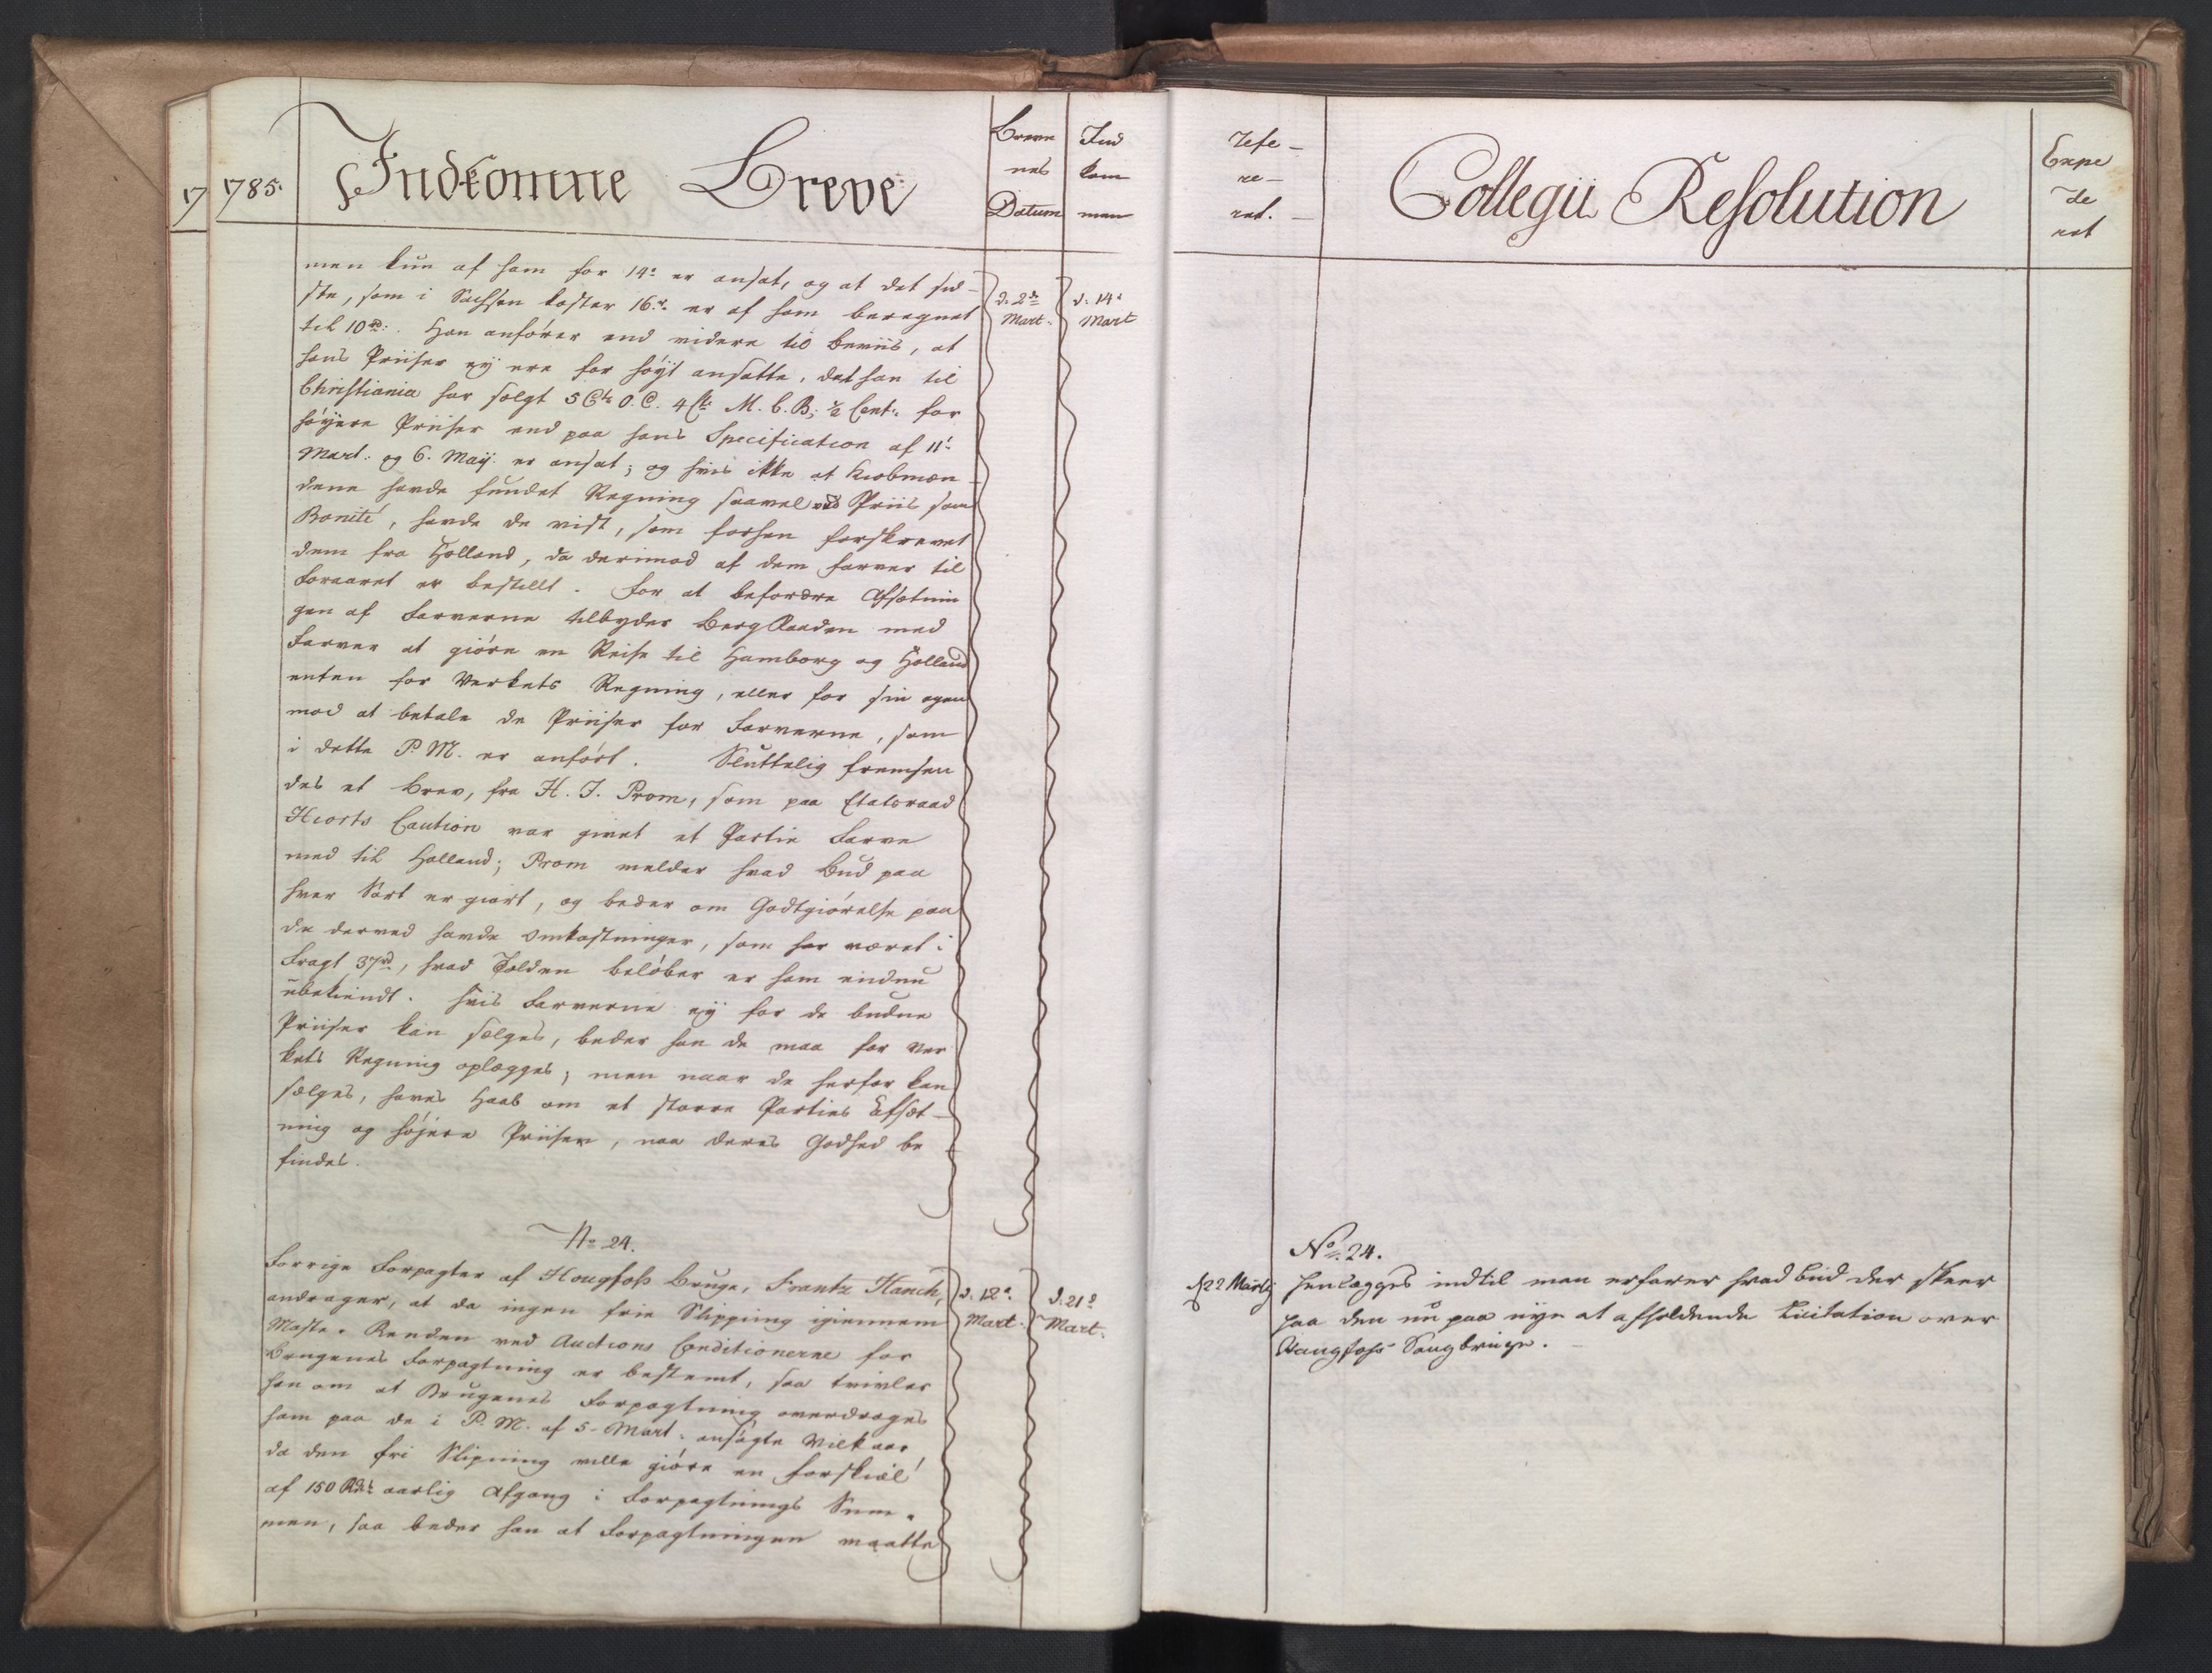 17
1785.
Indkomne Breve
Breve
nes
Datum
Ind
kom
men
men kun af ham for 14 r er ansat, og at det sid-
ste, som i Sachsen koster 16 r. er af ham beregnet
til 10 rd:. Han anfører end videre til Beviis, at
hans Priiser ey ere for høyt ansatte, det han til
Christiania har solgt 5 Ctr O.C. 4 Ctr M.C.B; ½ Cent: for
høyere Priiser end paa hans Specification af 11:
Mart: og 6. Maij: er ansat; og hvis ikke at Kiobmæn-
dene havde fundet Regning saavel ved Priis som
Bonité, havde de vist, som forhen forskrevet
dem fra Holland, da derimod af dem Farver til
Foraaret er bestillt. For at befordre Afsætnin
gen af Farverne tilbyder BergRaaden med
Farver at giöre en Reise til Hamborg og Holland
enten for Verkets Regning, eller for sin egen
mod at betale de Priiser for Farverne, som
i dette P.M. er anfört. Sluttelig fremsen
des et Brev, fra H. J. Prom, som paa Etatsraad
Hiorts Caution var givet et Partie Farve
med til Holland; Prom melder hvad Bud paa
hver Sort er giort, og beder om Godtgiörelse paa
de derved havde Omkostninger, som har været i
Fragt 37 rd, hvad Tolden belöber er ham endnu
ubekiendt. Hvis Farverne ey for de budne
Priiser kan sælges, beder han de maa for Ver
kets Regning oplægges; men naar de herfor kan
sælges, haves Haab om et større Parties Afsæt-
ning og höjere Priiser, naar deres Godhed be
findes.
d. 2de
Mart.
d. 14de
Mart
No 24.
Forrige Forpagter af Hougfoss Bruge, Frantz Hanch,
andrager, at da ingen frie Slippning igiennem
Maste-Renden ved Auctions Conditionerne for
Brugenes Forpagtning er bestemt, saa tvivler
han om at Brugenes Forpagtning overdrages
ham paa de i P.M. af 5- Mart: ansögte Vilkaar
da den fri Slipning ville giöre en forskiæl
af 150 Rdr aarlig Afgang i Forpagtnings Sum-
men, saa beder han at Forpagtningen maatte
d. 12te
Mart.
d. 21de
Mart.
Refe-
re-
ret.
Collegii Resolution
Expe
de
ret
No. 24.
d 22 Martij
Henlægges indtil man erfarer hvad bud der skeer
paa den nu paa nye at afholdende Licitation over
Haugfoss Saugbruge.